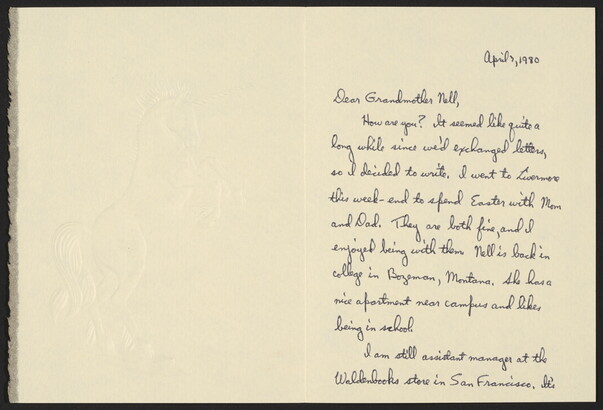 April 7, 1980
Dear Grandmother Nell,
How are you? It seemed like quite a
long while since we'd exchanged letters,
so I decided to write. I went to Livermore
this week-end to spend Easter with Mom
and Dad. They are both fine, and I
enjoyed being with them. Nell is back in
college in Bozeman, Montana. She has a
nice apartment near campus and likes
being in school.
I am still assistant manager at the
Waldenbooks store in San Francisco. It's